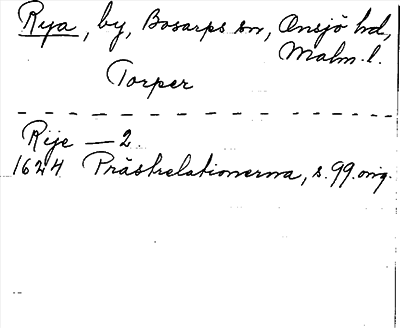 Rya, by, Bosarps sn, Onsjö hd,
Malm. l.
Torper
Rije — 2
1624 Prästrelationerna, s. 99. orig.